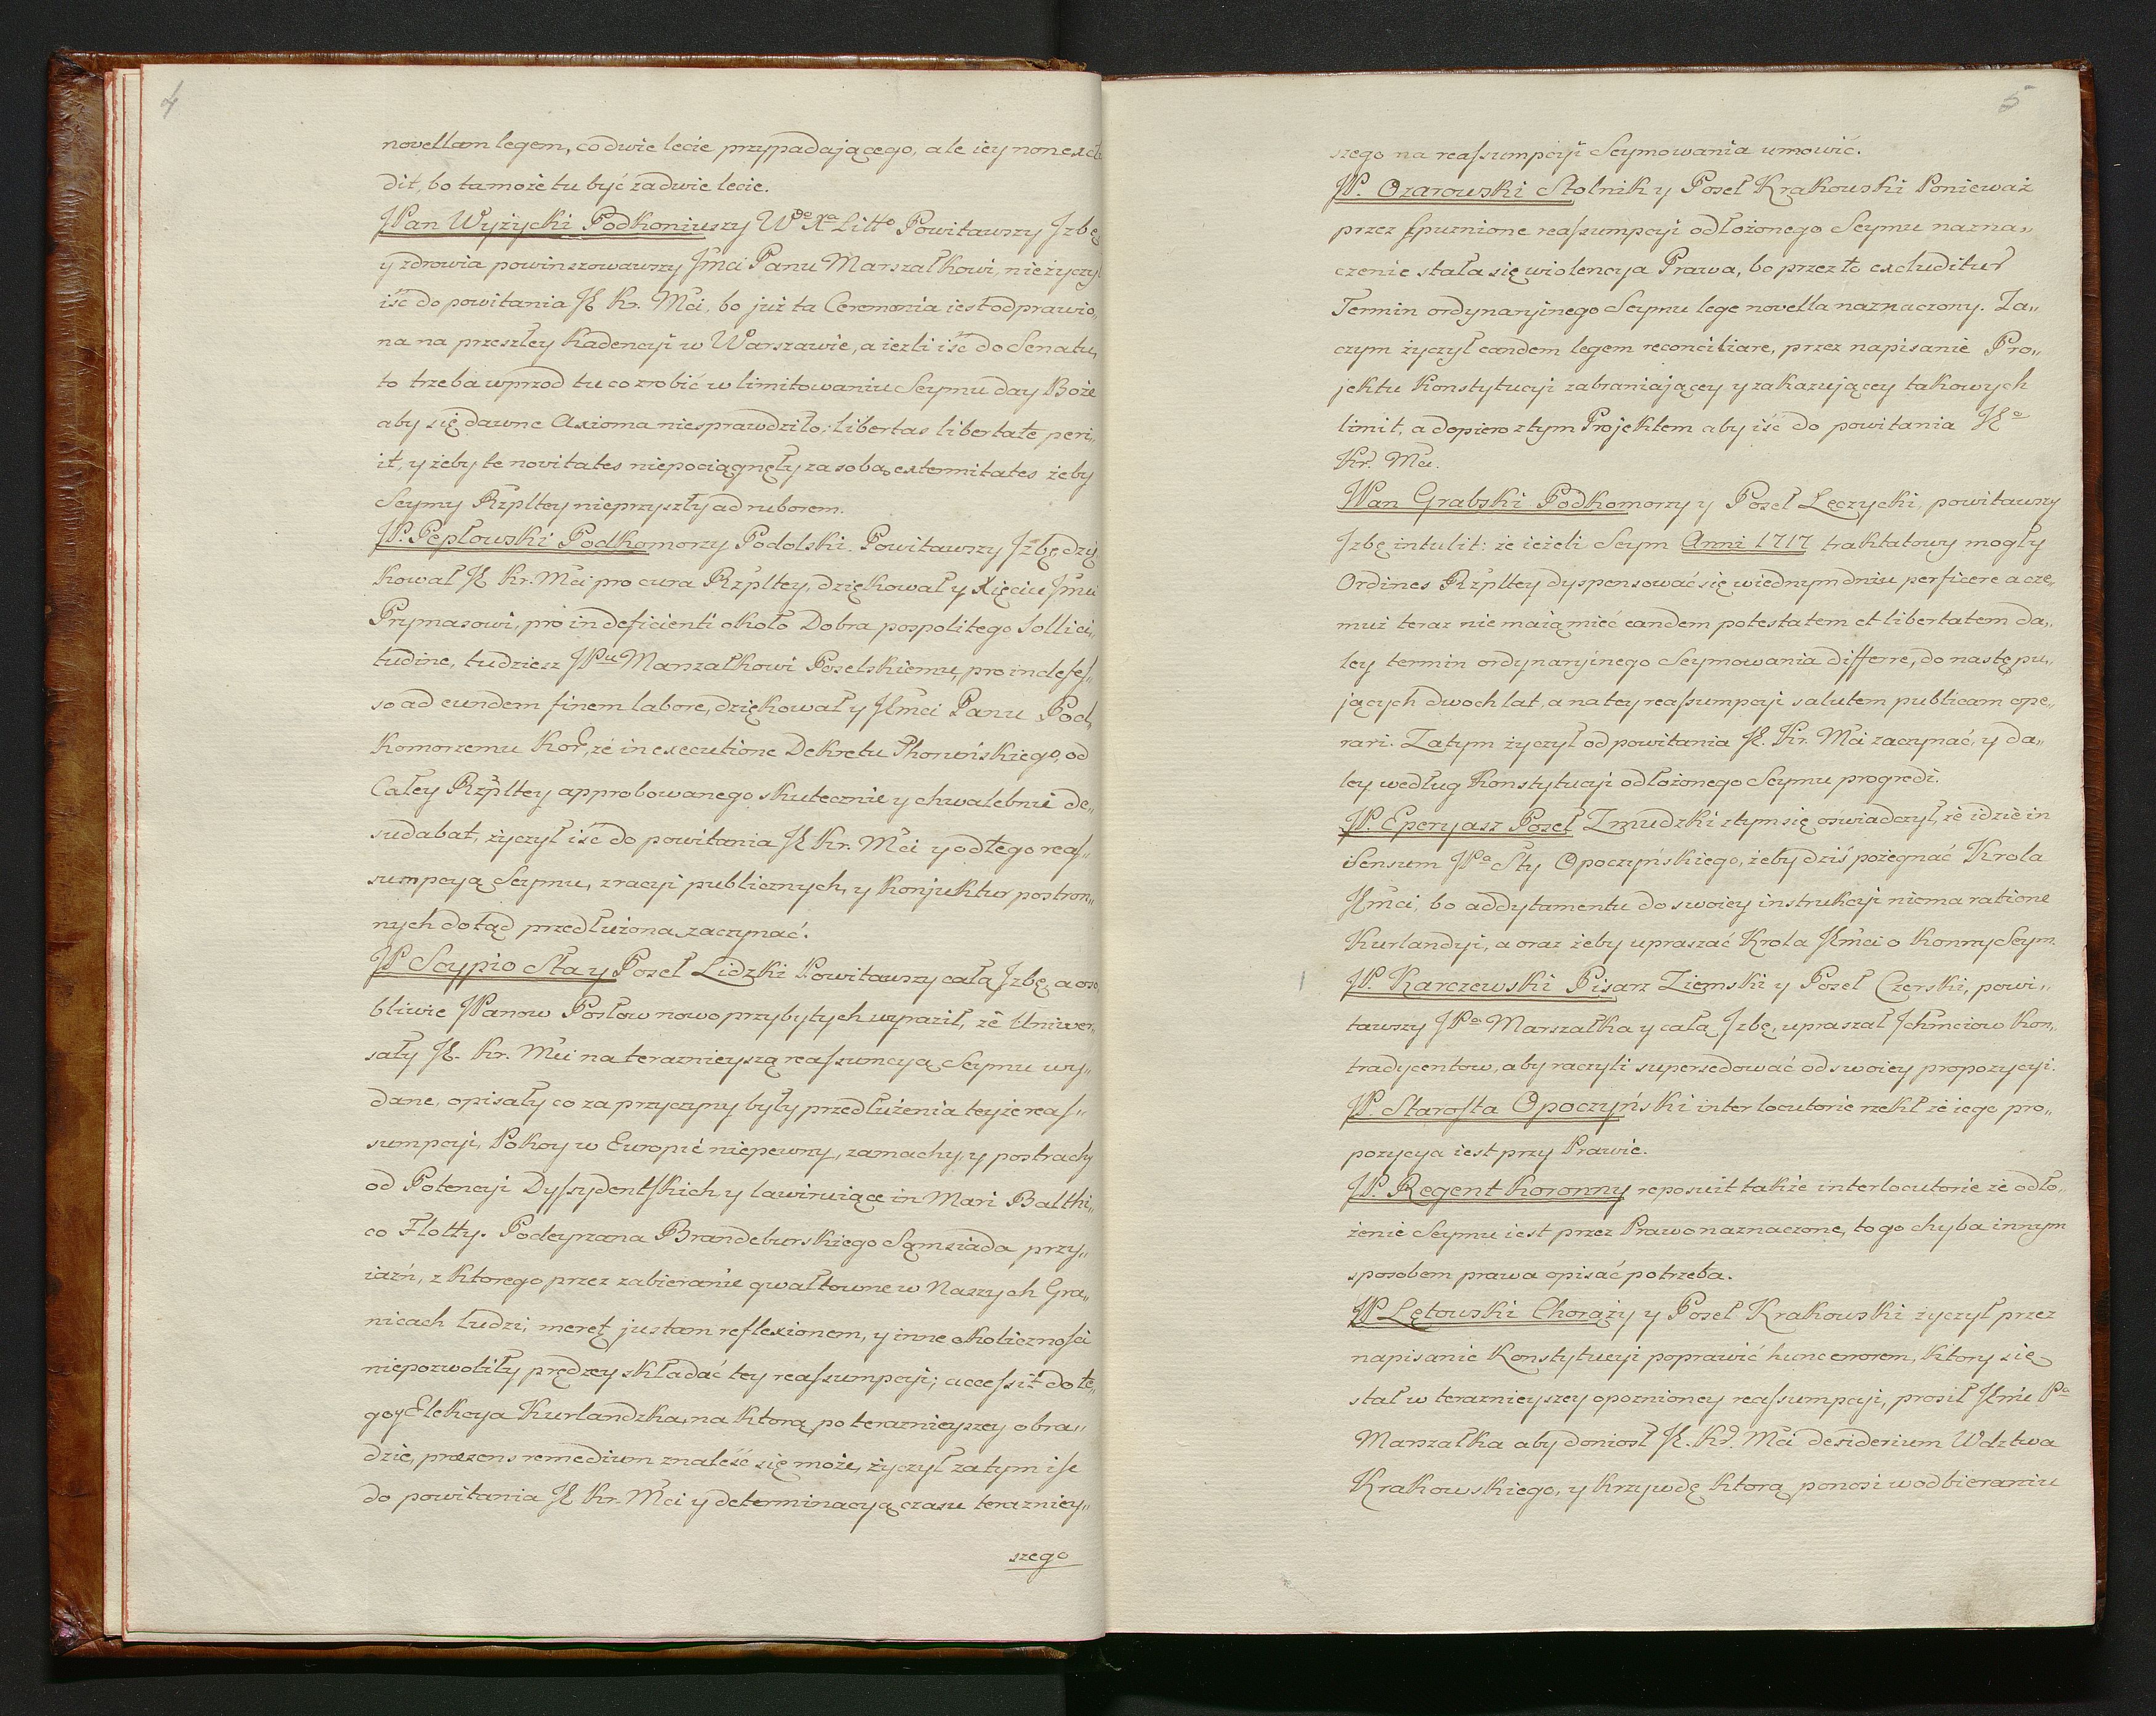 4
novellam legem, co dwie lecie przypadającego, ale iey non exclu
dit, bo ta może tu być za dwie lecie.
JPan Wyżycki Podkoniuszy Wo Xa Litto Powitawszy Jzbę
y zdrowia powinszowawszy Jmci Panu Marszałkowi, nie życzył
iść do powitania JK Kr. Mci, bo już ta Ceremonia iest odprawio„
na na przeszłey Kadencyi w Warszawie, a iezli iść do Senatu,
to trzeba wprzod tu co zrobić w limitowaniu Seymu day Boże
aby się dawne Axioma niesprawdziło: libertas libertate peri„
it, y żeby te novitates niepociągnęły za sobą extermitates żeby
Seymy Rzpltey nieprzyszły ad ruborem.
JP. Pepłowski Podkomorzy Podolski. Powitawszy Jzbę dzię
kował JK Kr. Mci pro cura Rzpltey, dziękował y Xięciu Jmci
Prymasowi, pro indeficienti około Dobra pospolitego sollici„
tudine, tudziesz JPu Marszałkowi Poselskiemu, pro indefes„
so ad eundem finem labore, dziękował y JKmci Panu Pod„
komorzemu Kor, że in executione Dekretu Thoruńskiego, od
Całey Rzpltey approbowanego skutecznie y chwalebnie de„
sudabat, życzył iść do powitania JK Kr. Mci y od tego reas„
sumpcyą Seymu, z racyi publicznych, y konjuktur postron„
nych dotąd przedłużona, zaczynać.
JP Scypio Sta y Poseł Lidzki Powitawszy całą Jzbę, a oso„
bliwie JPanow Posłow nowo przybytych wyraził, że Uniwer„
sały JK. Kr. Mci na teraznieyszą reassumcyą Seymu wy„
dane, opisały co za przyczyny były przedłużenia teyże reas„
sumpcyi, Pokoy w Europie niepewny, zamachy, y postrachy
od Potencyi Dyssydentskich, y lawiruiące in Mari Balthi„
co Flotty. Podeyrzana Brandeburskiego Sąmsiada przy„
iaźń, z ktorego przez zabieranie gwałtowne w Naszych Gra„
nicach ludzi, meret justam reflexionem, y inne okoliczności
niepozwoliły prędzey składać tey reassumpcyi; accessit do te„
goż Elekcya Kurlandzka, na ktorą po teraznieyszey obra„
dzie, praezens remedium znaleść się może, życzył zatym iść
do powitania JK Kr. Mci y determinacyą czasu terazniey„
szego
5
szego na reassumpcyi Seymowania umowić.
JP. Ozarowski Stolnik y Poseł Krakowski Ponieważ
przez spuznione reassumpcyi odłożonego Seymu nazna„
czenie stała się wiolencya Prawa, bo przez to excluditur
Termin ordynaryjnego Seymu lege novella naznaczony. Za„
czym życzył eandem legem reconciliare, przez napisanie Pro„
jektu Konstytucyi zabraniającey y zakazującey takowych
limit, a dopiero z tym Projektem aby iść do powitania JKo
Kr. Mci.
JPan Grabski Podkomorzy y Poseł Lęczycki, powitawszy
Jzbę intulit: że ieżeli Seym Anni 1717 traktatowy mogły
Ordines Rzpltey dyspensować się w iednym dniu perficere a cze„
muż teraz nie maią mieć eandem potestatem et libertatem da„
ley termin ordynaryjnego Seymowania differre, do następu„
jących dwoch lat, a na tey reassumpcyi salutem publicam ope„
rari. Zatym życzył od powitania JK. Kr. Mci zaczynać, y da„
ley według Konstytucyi odłożonego Seymu progredi.
JP. Eperyasz Poseł Zmudzki z tym się oswiadczył, że idzie in
sensum JPa Sty Opoczyńskiego, żeby dziś pożegnać Krola
JKmci, bo addytamentu do swoiey instrukcyi niema ratione
Kurlandyi, a oraz żeby upraszać Krola JKmci o konny Seym.
JP. Karczewski Pisarz Ziemski y Poseł Czerski, powi„
tawszy JPa Marszałka y całą Jzbę, upraszał Jchmciow Kon„
tradycentow, aby raczyli supersedować od swoiey propozycyi.
JP. Starosta Opoczyński interlocutorie rzekł że iego pro„
pozycya iest przy Prawie.
JP. Regent Koronny reposuit także interlocutorie że odło„
żenie Seymu iest przez Prawo naznaczone, to go chyba innym
sposobem prawa opisać potrzeba.
JP Lętowski Chorąży y Poseł Krakowski życzył przez
napisanie Konstytucyi poprawić hunc errorem, ktory się
stał w teraznieyszey opoznioney reassumpcyi, prosił JKmci Pa
Marszałka aby doniosł JK. Kr. Mci desiderium Wdztwa
Krakowskiego, y krzywdę ktorą ponosi w odbieraniu